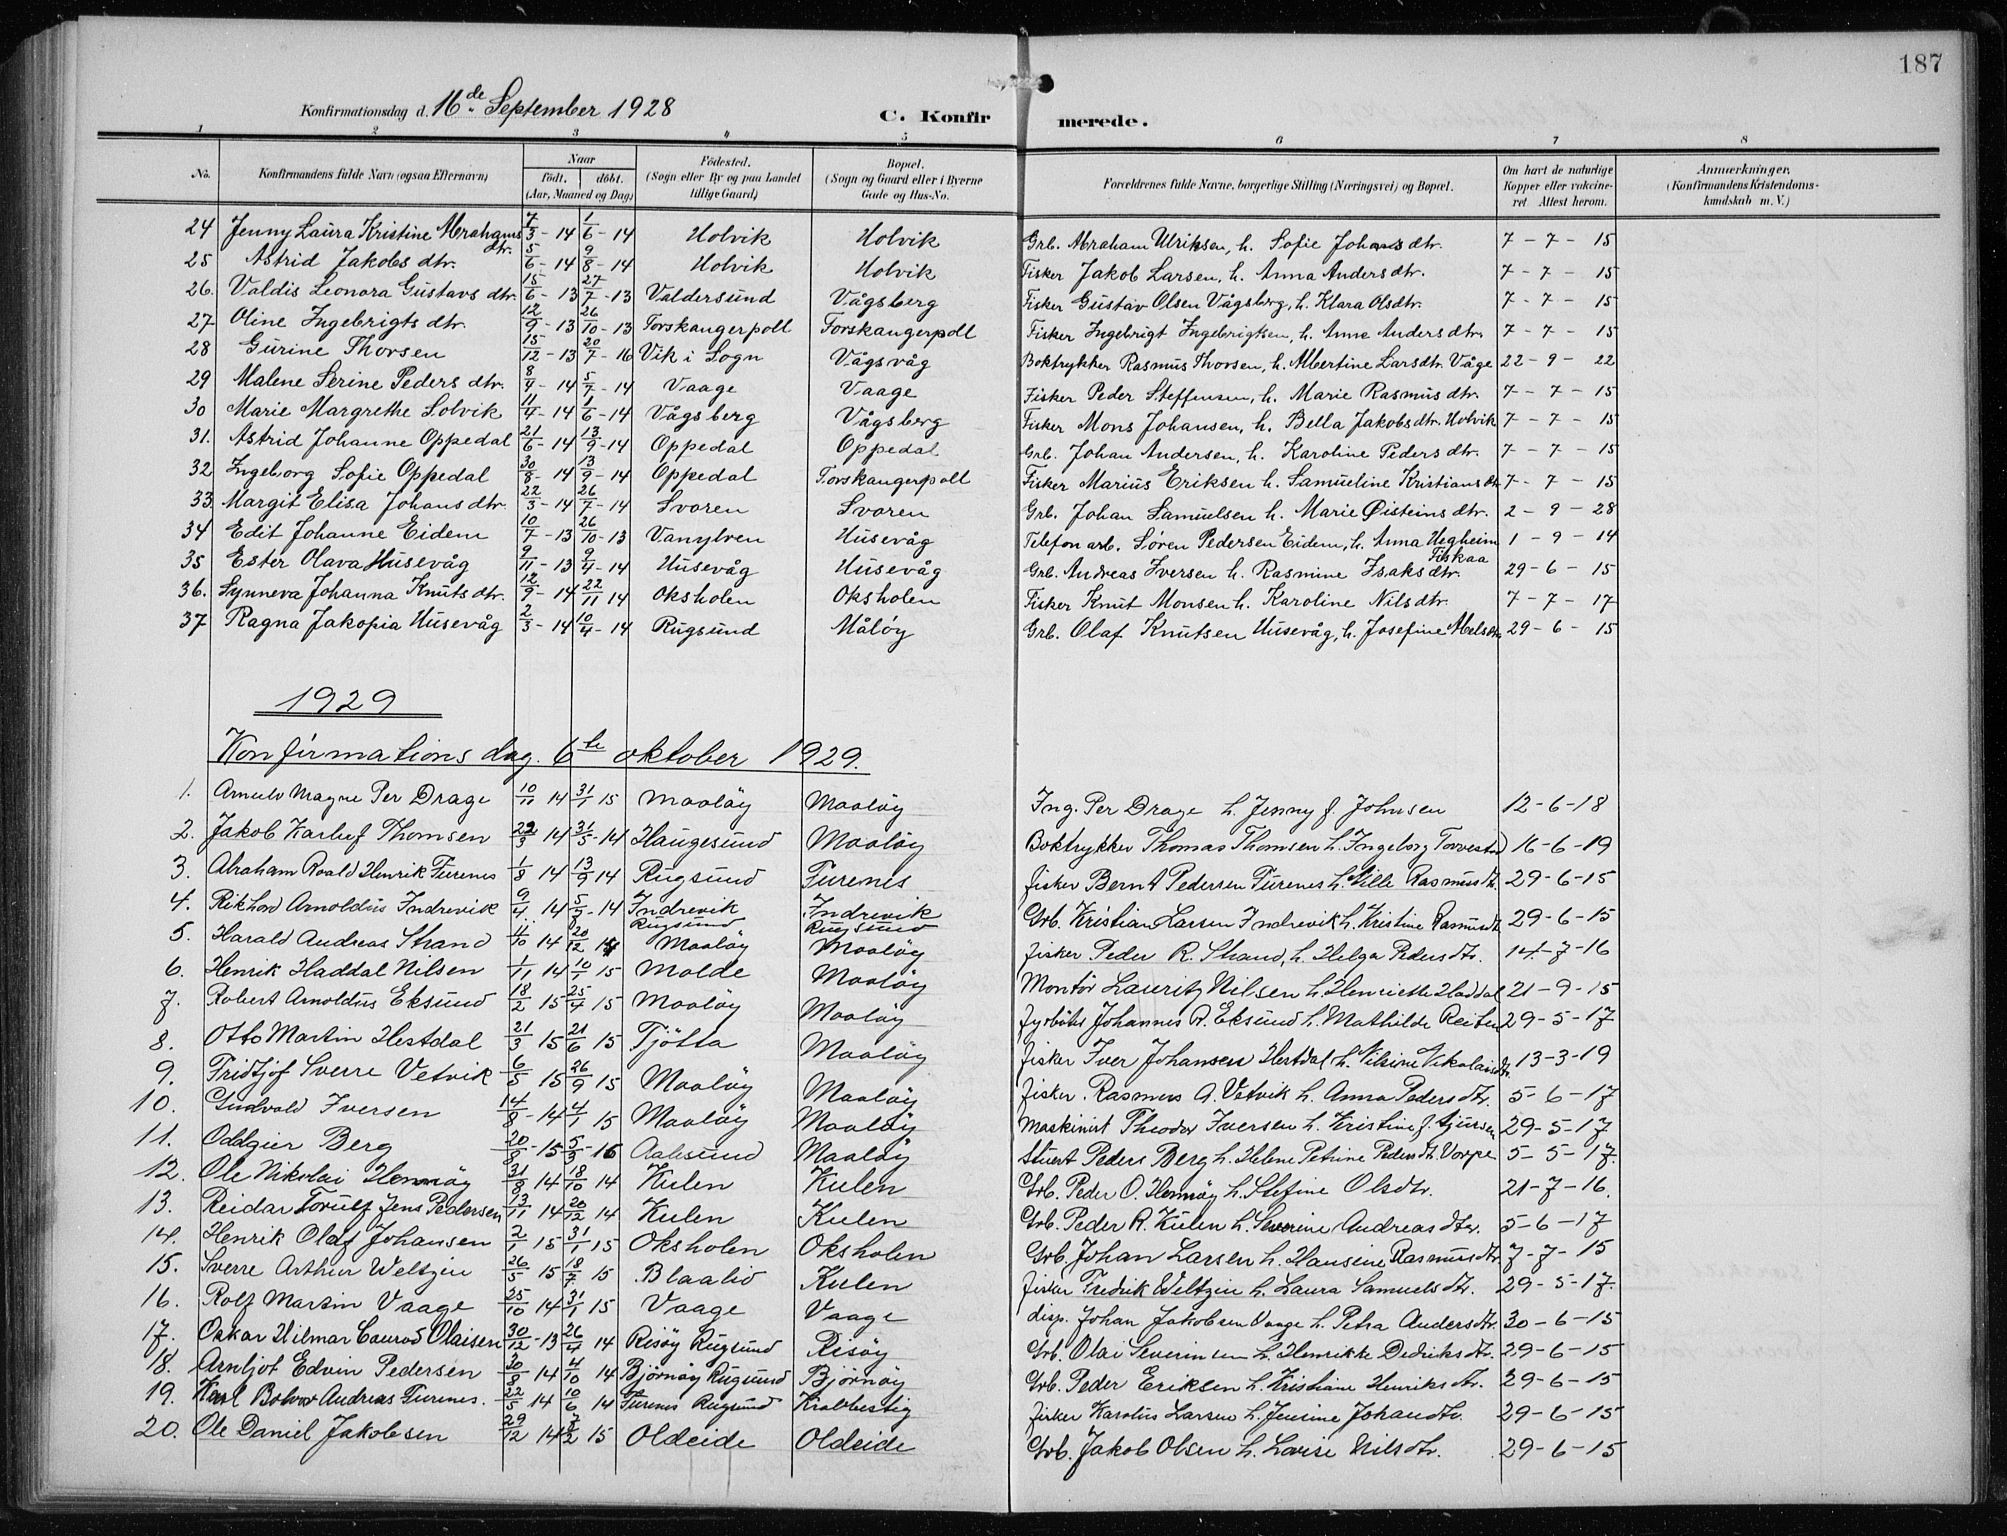 187
Konfirmationsdag d. 16de September 1928
C. Konfirmerede.
1 2 3 4 5 6 7 8
No. Konfirmandens fulde Navn (ogsaa Efternavn) Naar født. døbt. (Aar, Maaned og Dag) Fødested. (Sogn eller By og paa Landet tillige Gaard) Bopæl. (Sogn og Gaard eller i Byerne Gade og Hus-No. Forældrenes fulde Navne, borgerlige Stilling (Næringsvei) og Bopæl. Om havt de naturlige Kopper eller vakcineret Attest herom. Anmærkninger. (Konfirmandens Kristendomskundskab m. V.)
24 Jenny Laura Kristine Abrahamsdtr. 7/3-14 1/6-14 Holvik Holvik Grb. Abraham Ulriksen, h. Sofie Johansdtr. 7-7-15
25 Astrid Jakobsdtr. 5/6-14 9/8-14 Holvik Holvik Fisker Jakob Larsen, h. Anna Andersdtr. 7-7-15
26. Valdis Leonora Gustavsdtr. 15/6-13 27/7-13 Valdersund Vågsberg Fisker Gustav Olsen Vågsberg, h. Klara Olsdtr. 7-7-15
27 Oline Ingebrigtsdtr. 12/9-13 26/10-13 Torskangerpoll Torskangerpoll Fisker Ingebrigt Ingebrigtsen, h. Anne Andersdtr. 7-7-15
28 Gurine Thorsen 15/12-13 20/7-16 Vik i Sogn Vågsvåg Boktrykker Rasmus Thorsen, h. Albertine Larsdtr. Våge 22-9-22
29 Malene Serine Pedersdtr. 8/4-14 5/7-14 Vaage Vaage Fisker Peder Steffensen, h. Marie Rasmusdtr. 7-7-15
30 Marie Margrethe Solvik 11/4-14 1/6-14 Vågsberg Vågsberg Fisker Mons Johansen, h. Bella Jakobsdtr. Holvik 7-7-15
31. Astrid Johanne Oppedal 21/6-14 13/9-14 Oppedal Oppedal Grb. Johan Andersen, h. Karoline Pedersdtr. 7-7-15
32 Ingeborg Sofie Oppedal 30/8-14 13/9-14 Oppedal Torskangerpoll Fisker Marius Eriksen h. Samueline Kristiansdtr 7-7-15
33. Margit Elisa Johansdtr. 22/3-14 26/7-14 Svoren Svoren Grb. Johan Samuelsen h. Marie Øisteinsdtr. 2-9-28
34 Edit Johanne Eidem 10/7-13 26/10-13 Vanylven Husevåg Telefonarb. Søren Pedersen Eidem, h. Anna Hegheim Fiskaa 1-9-14
35 Ester Olava Husevåg 9/11-13 9/4-14 Husevåg Husevåg Grb. Andreas Iversen h. Rasmine Isaksdtr. 29-6-15
36. Synneva Johanna Knutsdtr. 12/9-14 22/11 14 Oksholen Oksholen Fisker Knut Monsen h. Karoline Nilsdtr. 7-7-17
37 Ragna Jakopia Husevåg 2/3-14 10/4-14 Rugsund Måløy Grb. Olaf Knutsen Husevåg, h. Josefine Abelsdtr 29-6-15
1929
Konfirmationsdag. 6te oktober 1929.
1. Arnulv Magne Per Drage 10/11 14 31/1 15 Maaløy Maaløy Ing. Per Drage h. Jenny f Johnsen 12-6-18
2. Jakob Karluf Thomsen 22/3 14 31/5-14 Haugesund Maaløy Boktrykker Thomas Thomsen h. Ingeborg Torvestad 16-6-19
3. Abraham Roald Henrik Furenes 1/8 14 13/9 14 Rugsund Furenes fisker Bernt Pedersen Furenes h. Rasmusdtr. 29-6-15
4. Rikhard Arnoldus Indrevik 9/4 14 5/7-14 Indrevik Rugsund Indrevik Rugsund Grb. Kristian Larsen Indrevik h. Kristine Rasmusdtr 29-6-15
5. Harald Andreas Strand 11/10 14 20/12 14 Maaløy Maaløy fisker Peder R. Strand, h. Helga Pedersdtr. 14-7-16
6. Henrik Haddal Nilsen 1/11 14 10/1 15 Molde Maaløy Montør Lauritz Nilsen h. Henriette Haddal 21-9-15
7. Robert Arnoldus Eksund 18/2 15 25/4 15 Maaløy Maaløy fyrbøter Johannes A. Eksund h. Mathilde Reiten 29-5-17
8. Otto Martin Hestdal 21/3 15 21/6 15 Tjøtta Maaløy fisker Iver Johansen Hestdal h. Nilsine Nikolaisdtr. 13-3-19
9. Fridtjof Sverre Vetvik 6/5 15 26/9 15 Maaløy Maaløy fisker. Rasmus A. Vetvik h. Anna Pedersdtr. 5-6-17
10. Gudvald Iversen 14/8-14 4/1 15 Maaløy Maaløy Maskinist Theodor Iversen h. Kristine f. 29-5-17
11. Oddgier Berg 20/8-15 5/3-16 Aalesund Maaløy Stuert Peder Berg h. Helene Petrine Pedersdtr. Vorpe 5-5-17.
12. Ole Nikolai Hennøy 31/8 14 18/10 14 Kulen Kulen Grb. Peder O. Hennøy h. Stefine Olsdtr. 21-7-16.
13. Reidar Torulf Jens Pedersen 13/11 14 20/12 14 Kulen Kulen Grb. Peder A. Kulen h. Severine Andreasdtr. 5-6-17
14. Henrik Olaf Johansen 2/1 15 31/1 15 Oksholen Oksholen Grb. Johan Larsen h. Hansine Rasmusdtr. 7-7-15
15. Sverre Arthur Weltzin 26/5 15 18/7 15 Blaalid Kulen fisker Fredrik Weltzin h. Laura Samuelsdtr. 29-5-17.
16. Rolf Martin Vaage 25/10 14 31/1 15 Vaage Vaage disp. Johan Jakobsen Vaage h. Petra Andersdtr. 30-6-15
17. Oskar Hilmar Conrad Olaisen 30/12-13 26/4 14 Risøy Rugsund Risøy Grb. Olai Severinsen h. Henrikke Dedriksdtr. 29-6-15
18. Arnljot Edvin Pedersen 30/8 14 4/10 14 Bjørnøy Rugsund Bjørnøy Grb. Peder Eriksen h. Kristiane Henriksdtr. 29-6-15
19. Karl Andreas Furenes. 22/5 14 10/6 14 Furenes Rugsund Krabbestig fisker Karolus Larsen h. Jensine Johansdtr. 29-6-15
20. Ole Daniel Jakobsen 29/12 14 7/2 15 Oldeide Oldeide Grb. Jakob Olsen h. Lovise Nilsdtr. 29-6-15